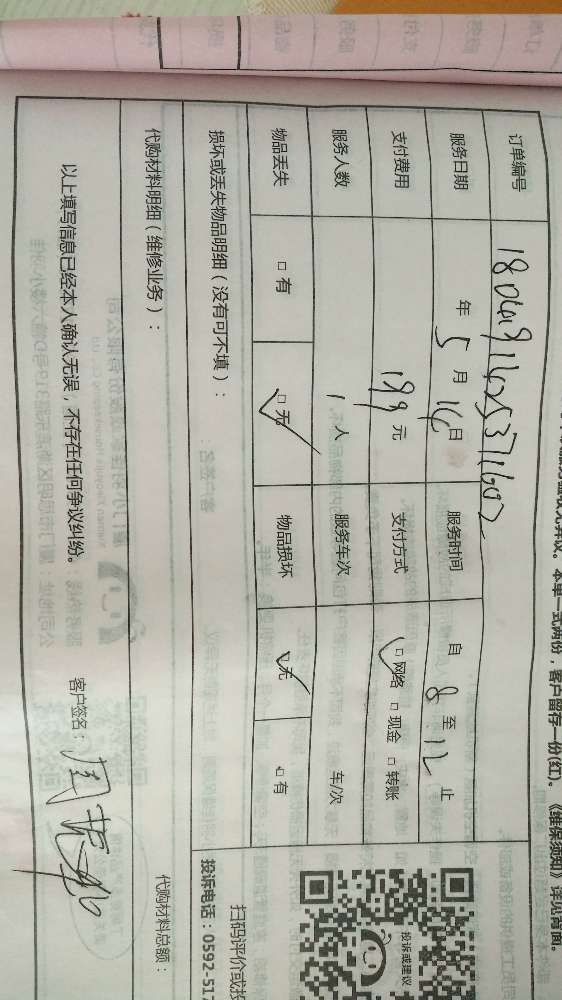 本单一式两份，客户留存一份(红)。《维保须知》详见背面。
订单编号 1804191625371602
服务日期 年 5 月 16 日 服务时间 自 8 至 12 止
支付费用 199 元 支付方式 ☑ 网络 □ 现金 □ 转账
服务人数 1 人 服务车次 车/次
物品丢失 □ 有 ☑ 无 物品损坏 ☑ 无 □ 有
损坏或丢失物品明细（没有可不填）：
代购材料明细（维修业务）：
代购材料总额：
以上填写信息已经本人确认无误，不存在任何争议纠纷。 客户签名：
投诉或建议
扫码评价或投
投诉电话：0592-517